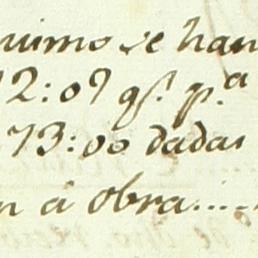 nimo se han
2:09 qs. p.a
73:00 dadas
n á obra......